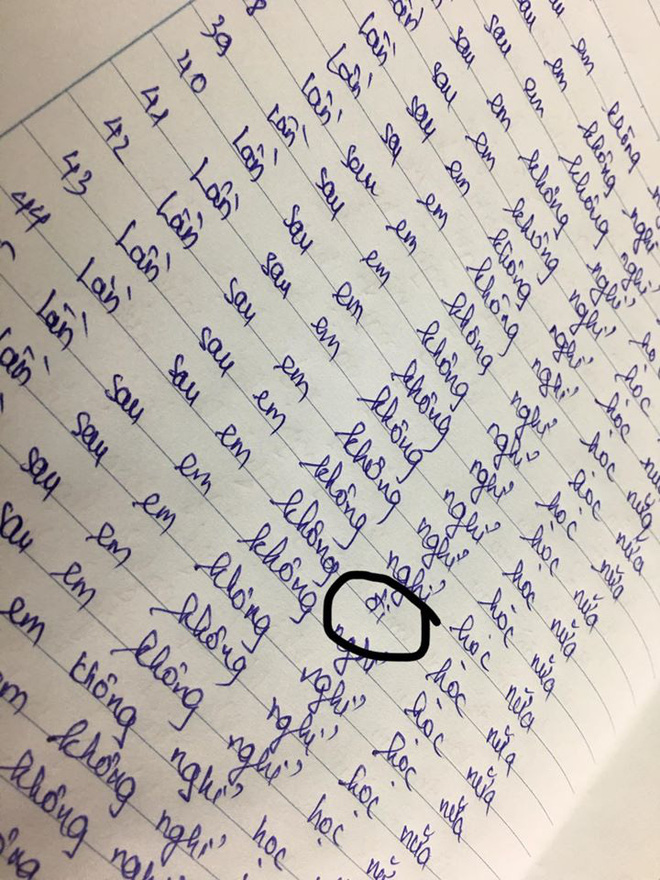 em không
sau em không nghỉ
sau em không nghỉ
Lần sau em không nghỉ học
Lần sau em không nghỉ học
Lần sau em không nghỉ học nữa
39 Lần sau em không nghỉ học nữa
40 Lần sau em không nghỉ học nữa
41 Lần sau em không nghỉ học nữa
42 Lần sau em không nghỉ học nữa
43 Lần sau em không nghỉ học nữa
44 Lần sau em không đi học nữa
Lần sau em không nghỉ học nữa
Lần sau em không nghỉ học nữa
sau em không nghỉ học nữa
sau em không nghỉ học
em không nghỉ học
em không nghỉ
không nghỉ